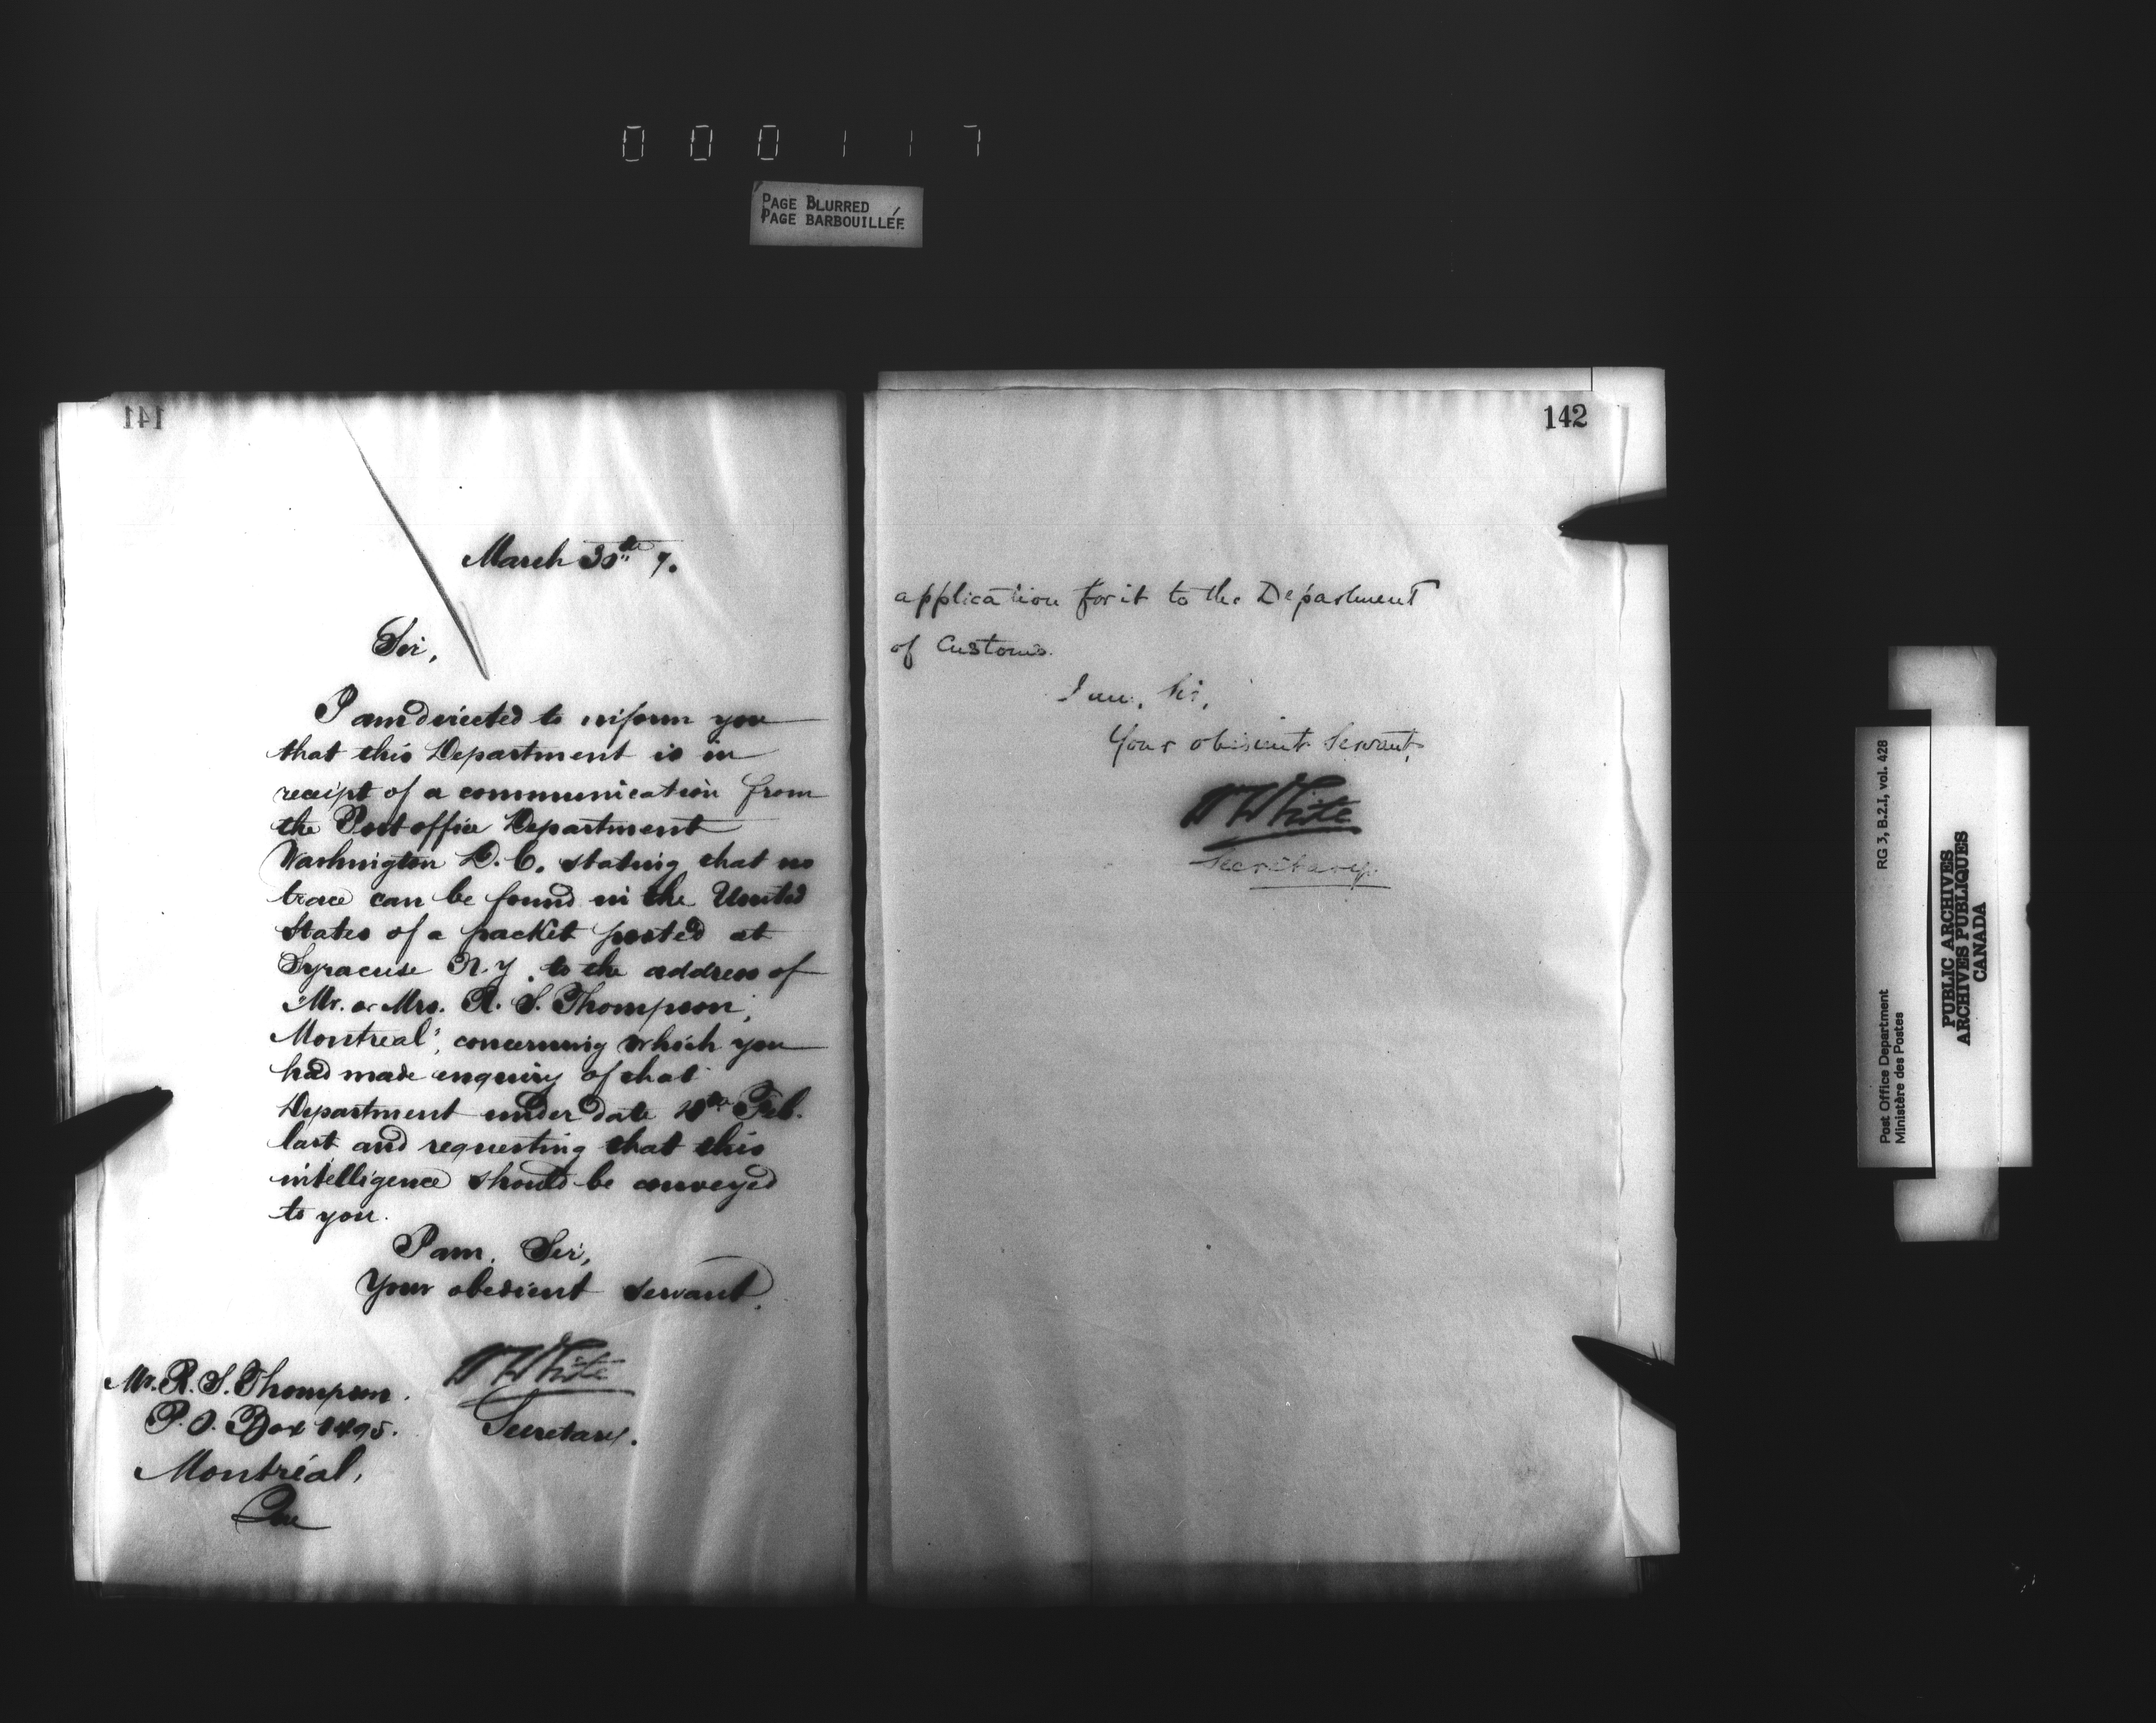 000117
PAGE BLURRED
PAGE BARBOUILLÉE
141
March 30th 7.
Sir,
I am directed to inform you
that this Department is in
receipt of a communication from
the Post office Department
Washington D.C. stating that no
trace can be found in the United
States of a packet posted at
Syracuse N.Y. to the address of
Mr. or Mrs. R. S. Thompson,
Montreal, concerning which you
had made enquiry of that
Department under date Feb.
last and requesting that this
intelligence should be conveyed
to you.
I am, Sir,
Your obedient servant,
W White
Secretary.
Mr. R. S. Thompson.
P.O. Box
Montreal,
Que
142
application for it to the Department
of Customs.
I am, Sir,
Your obedient Servant,
W White
Secretary.
Post Office Department
Ministère des Postes
RG 3, B.2.I, vol. 428
PUBLIC ARCHIVES
ARCHIVES PUBLIQUES
CANADA